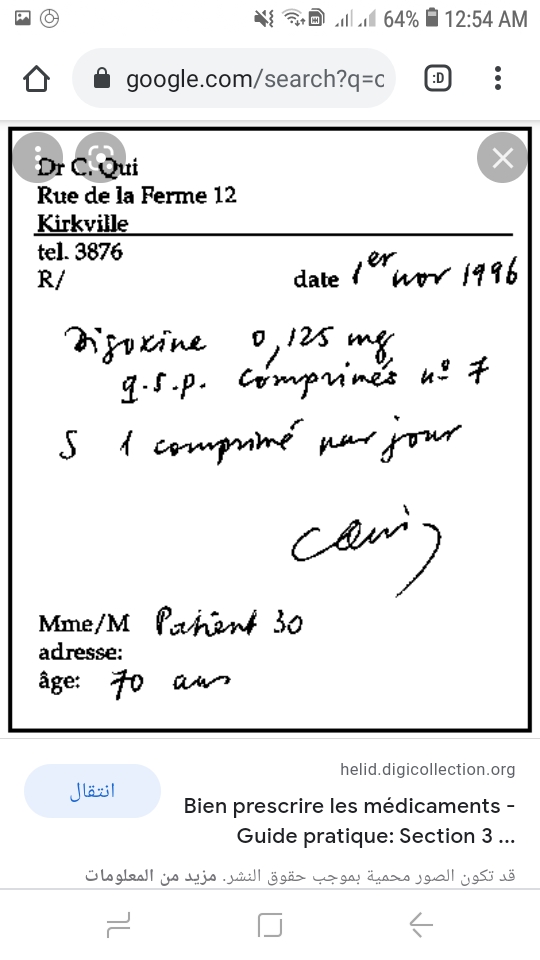 64% 12:54 AM
google.com/search?q=c
:D
Dr C. Qui
Rue de la Ferme 12
Kirkville
tel. 3876
R/
date 1er nov 1996
Digoxine 0,125 mg
q.s.p. comprimés nº 7
S 1 comprimé par jour
Mme/M Patient 30
adresse:
âge: 70 ans
helid.digicollection.org
انتقال
Bien prescrire les médicaments -
Guide pratique: Section 3 ...
قد تكون الصور محمية بموجب حقوق النشر. مزيد من المعلومات